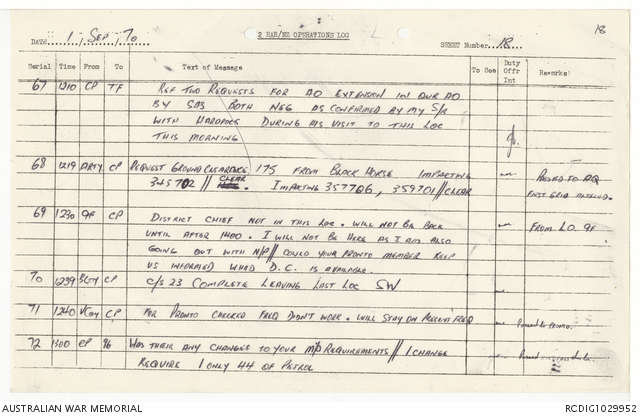 18
2 RAR/NZ OPERATIONS LOG
DATE 1, SEP, 70 SHEET Number 18
Serial Time From To Text of Message To See Duty Offr Int Remarks
67 1210 CP TF REF TWO REQUESTS FOR AO EXTENSION IN OUR AO
BY SAS BOTH NEG AS CONFIRMED BY MY S/R
WITH DURING HIS VISIT TO THIS LOC
THIS MORNING
68 1219 ARTY CP REQUEST GROUND CLEARENCE 175 FROM BLACK HORSE IMPACTING PASSED TO
345702 // CLEAR. IMPACTING 357706, 359701 // CLEAR FIRST GRID
69 1230 9F CP DISTRICT CHIEF NOT IN THIS LOC. WILL NOT BE BACK FROM L.O. 9F
UNTIL AFTER 1400. I WILL NOT BE HERE AS I AM ALSO
GOING OUT WITH N/P // COULD YOUR PRONTO MEMBER KEEP
US INFORMED WHEN D.C. IS AVAILABLE.
70 1239 CP C/S 23 COMPLETE LEAVING LAST LOC SW
71 1240 VCoy CP FOR PRONTO CHECKED FREQ DIDN'T WORK. WILL STAY ON PRESENT FREQ Passed to Pronto.
72 1300 CP 96 WAS THEIR ANY CHANGES TO YOUR REQUIREMENTS // 1 CHANGE
REQUIRE 1 ONLY 44 OF PETROL
AUSTRALIAN WAR MEMORIAL RCDIG1029952